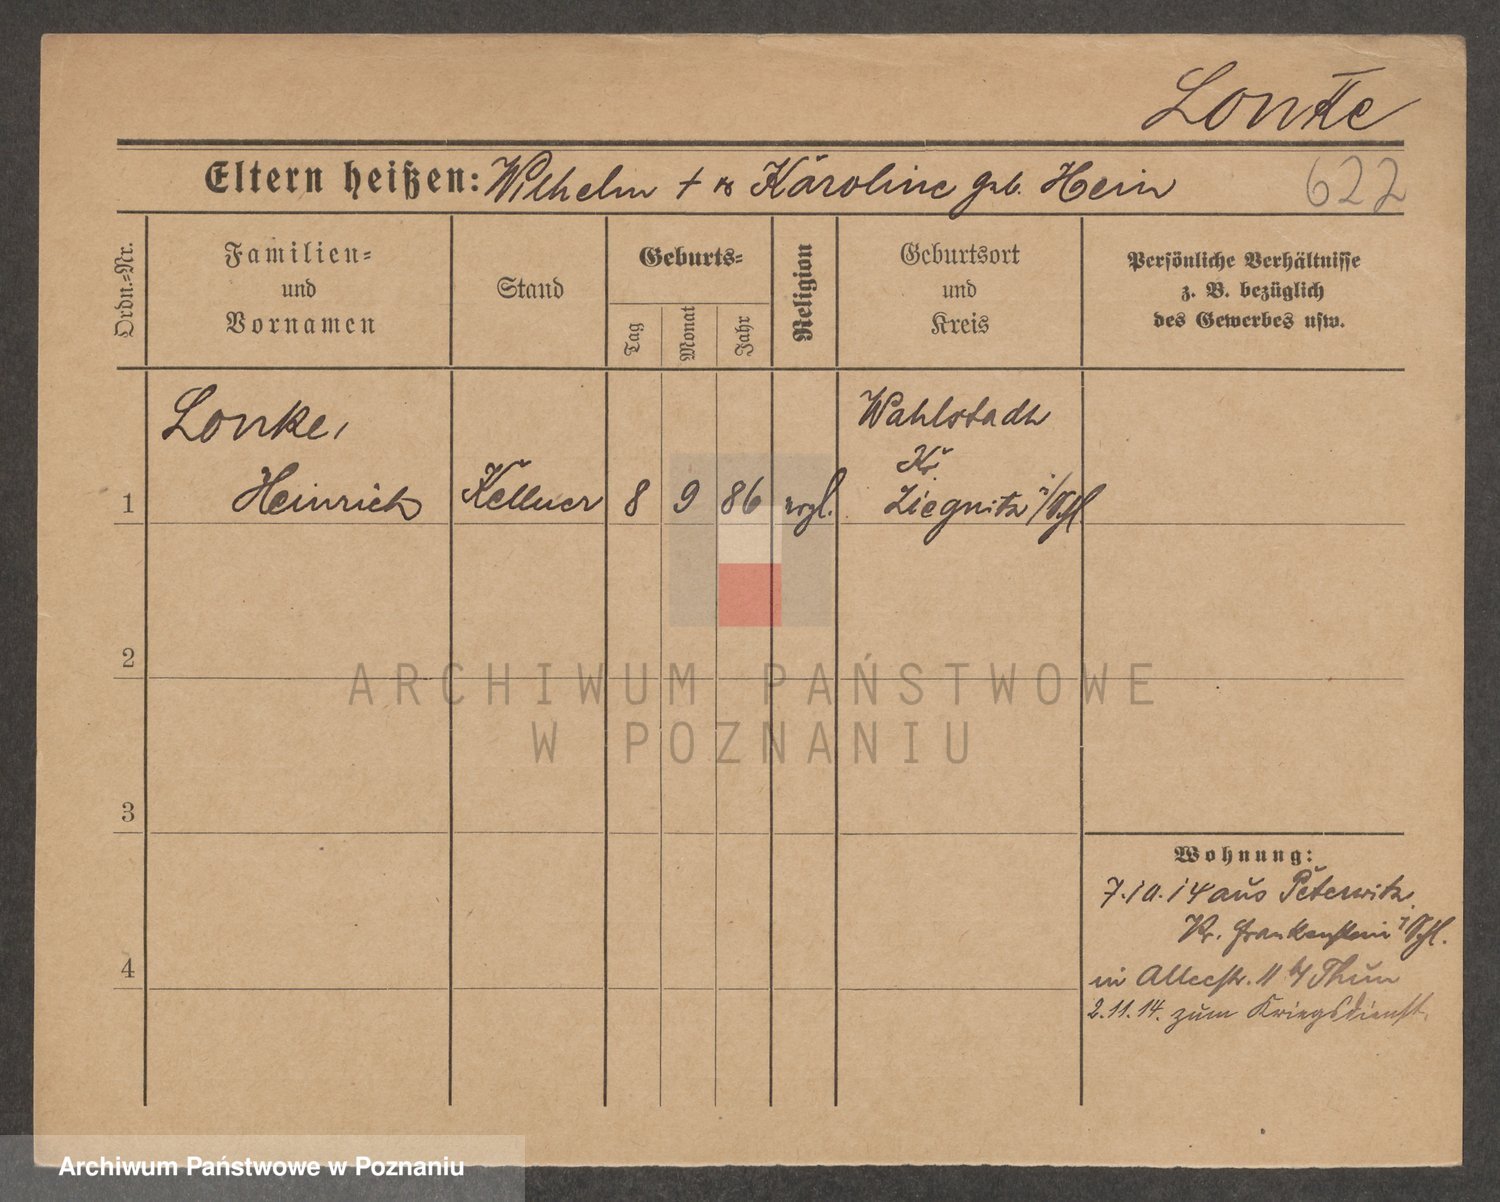 Lonke
Eltern heißen: Wilhelm † u Karoline geb. Hein
622
Ordn.-Nr.
Familien-
und
Vornamen
Stand
Geburts-
Tag
Monat
Jahr
Religion
Geburtsort
und
Kreis
Persönliche Verhältnisse
z. B. bezüglich
des Gewerbes usw.
Lonke,
Wahlstadt
Kr.
1 Heinrich Kellner 8 9 86 evgl. Liegnitz i/Schl
2
ARCHIWUM PAŃSTWOWE
W POZNANIU
3
Wohnung:
7.10.14 aus Peterwitz
Kr. Frankenstein i/Schl.
4
in Alleestr. 11 b/ Thun
2.11.14. zum Kriegsdienst.
Archiwum Państwowe w Poznaniu